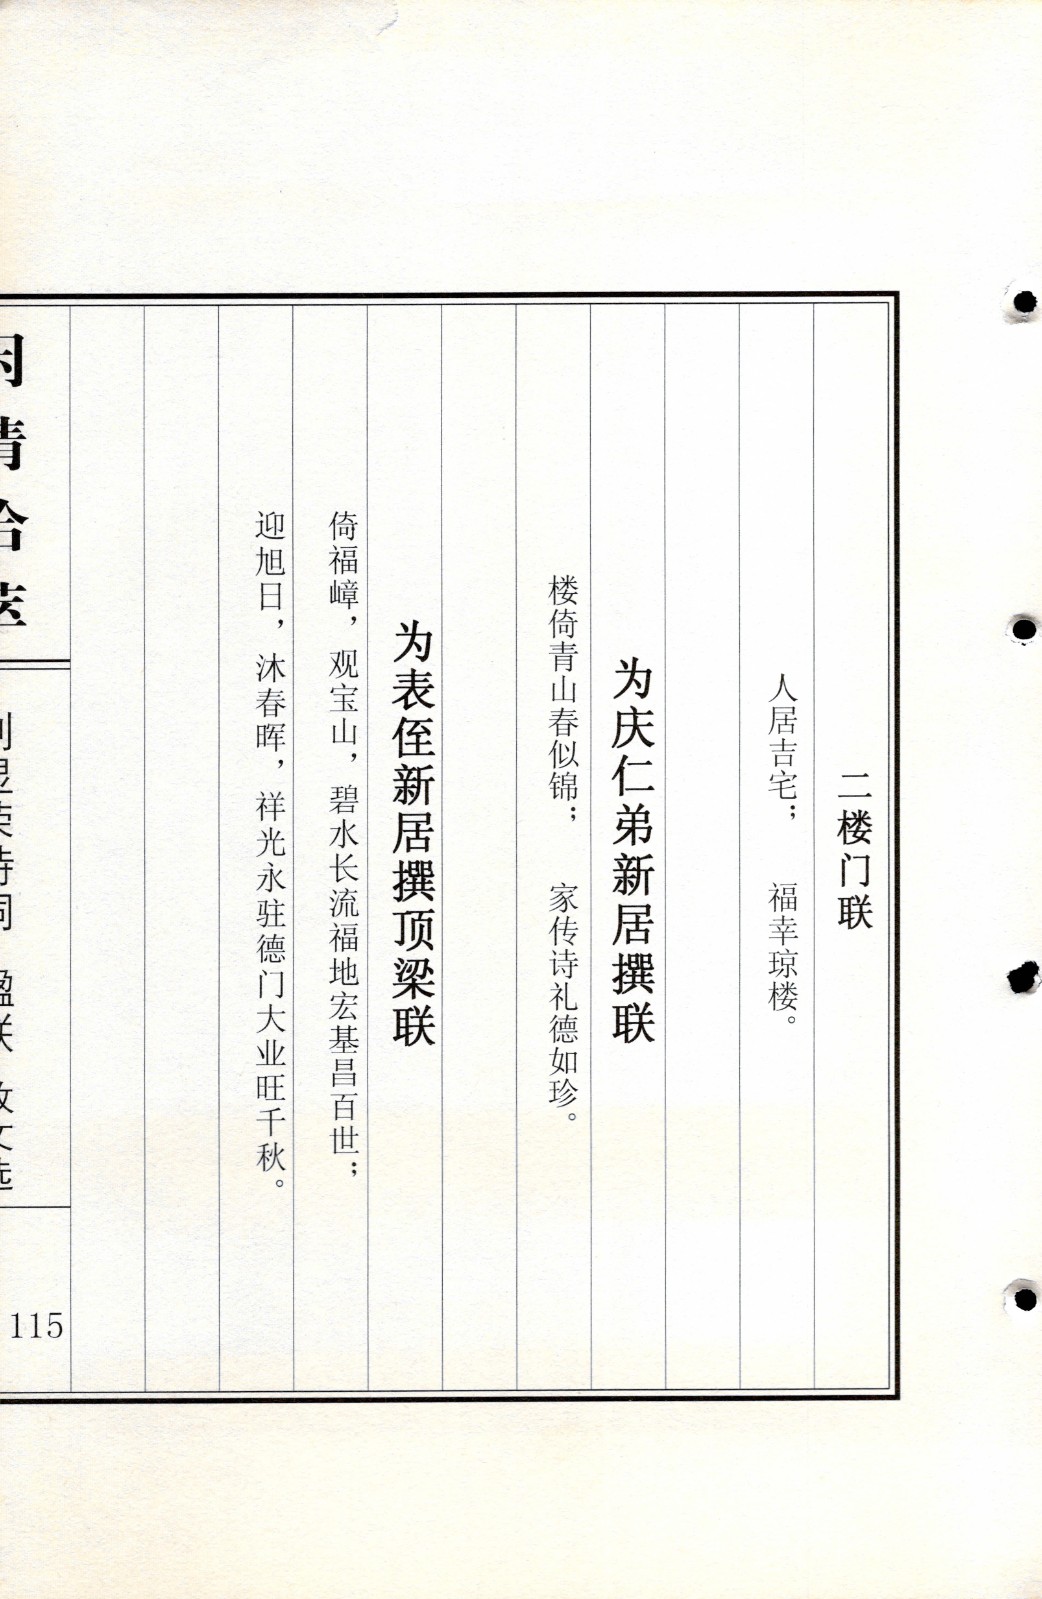 二楼门联
人居吉宅； 福幸琼楼。
为庆仁弟新居撰联
楼倚青山春似锦； 家传诗礼德如珍。
为表侄新居撰顶梁联
倚福嶂，观宝山，碧水长流福地宏基昌百世；
迎旭日，沐春晖，祥光永驻德门大业旺千秋。
115